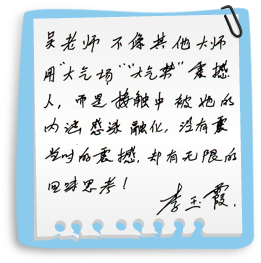 吴老师 不像其他大师
用"大气场""大气势"震撼
人，而是接触中被她的
内涵 慈泳 融化，没有震
当时的震撼，却有无限的
回味思考！
李玉霞.